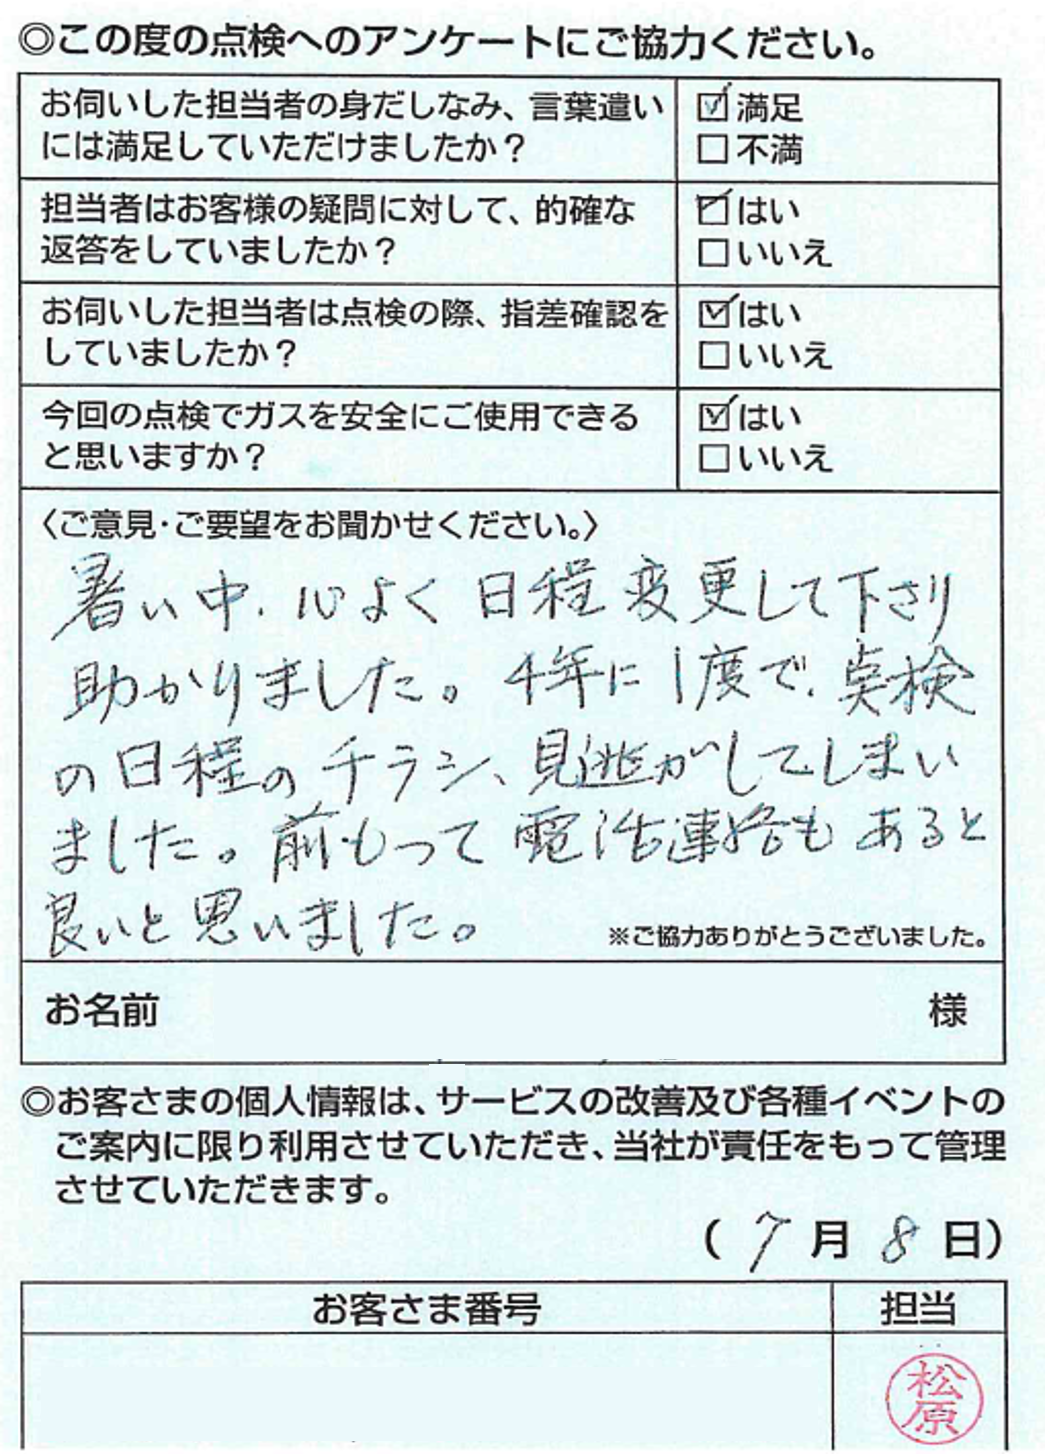 ◎この度の点検へのアンケートにご協力ください。
お伺いした担当者の身だしなみ、言葉遣い
には満足していただけましたか？
☑満足
□不満
担当者はお客様の疑問に対して、的確な
返答をしていましたか？
☑はい
□いいえ
お伺いした担当者は点検の際、指差確認を
していましたか？
☑はい
□いいえ
今回の点検でガスを安全にご使用できる
と思いますか？
☑はい
□いいえ
〈ご意見・ご要望をお聞かせください。〉
暑い中、心よく日程変更して下さり
助かりました。4年に1度で、点検
の日程のチラシ、見逃がしてしまい
ました。前もって電話連絡もあると
良いと思いました。
※ご協力ありがとうございました。
お名前 様
◎お客さまの個人情報は、サービスの改善及び各種イベントの
ご案内に限り利用させていただき、当社が責任をもって管理
させていただきます。
(7月8日)
お客さま番号 担当
松原